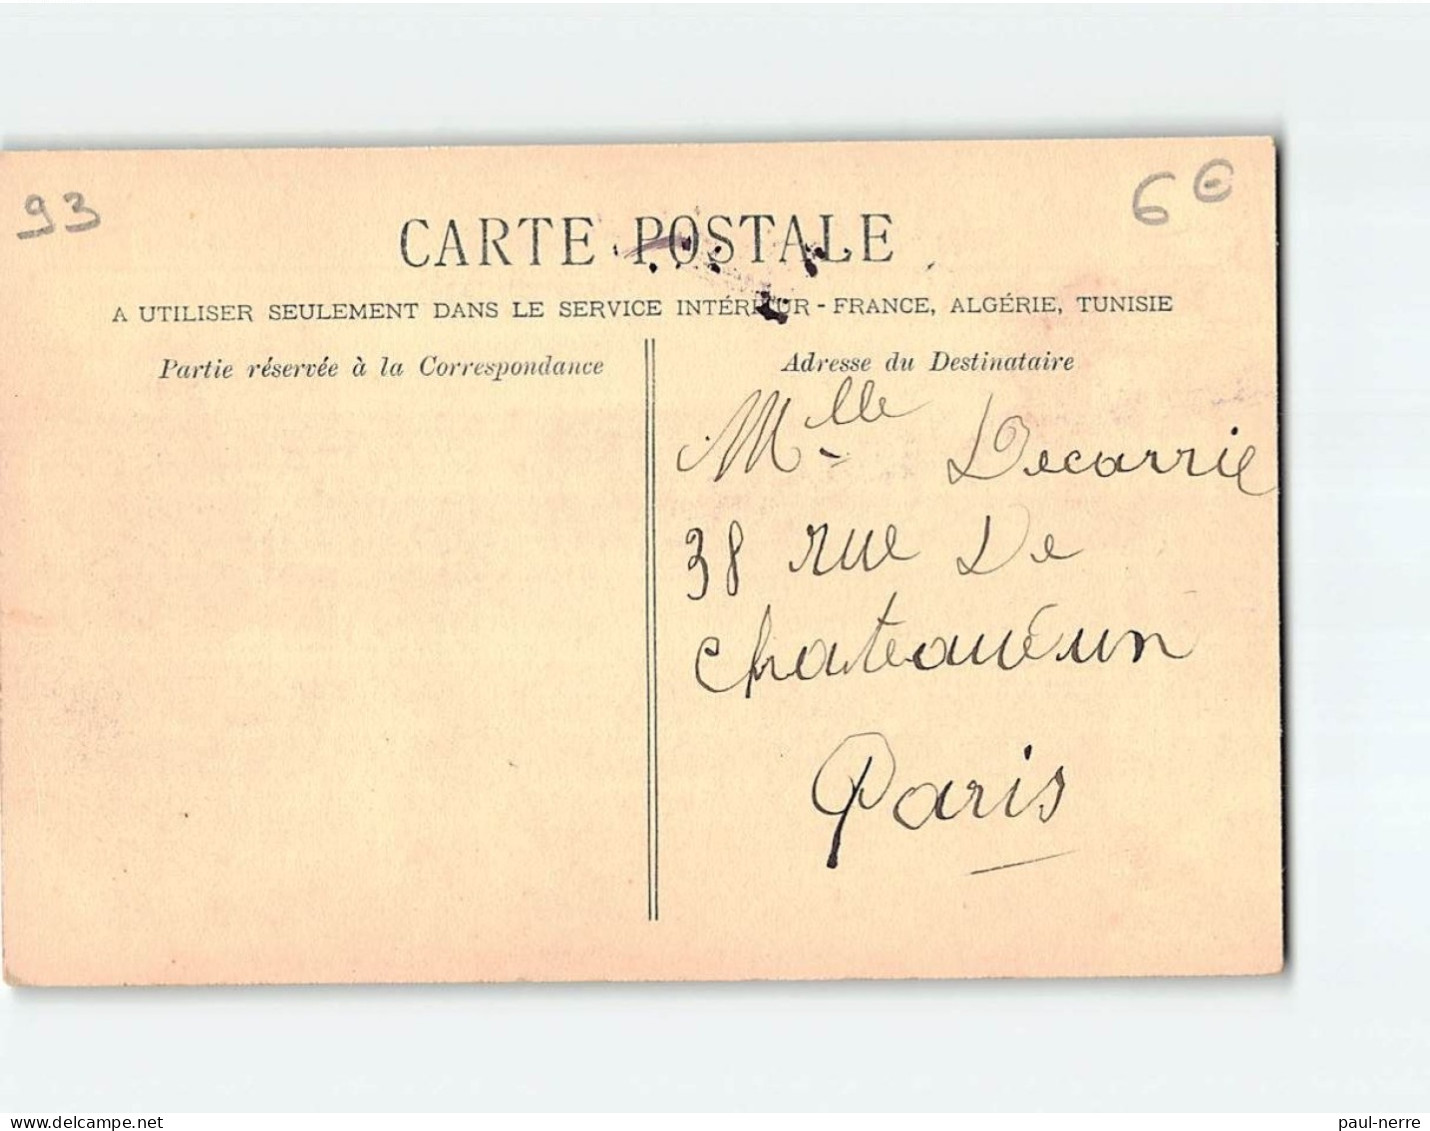 93
6€
CARTE POSTALE
A UTILISER SEULEMENT DANS LE SERVICE INTÉRIEUR - FRANCE, ALGÉRIE, TUNISIE
Partie réservée à la Correspondance
Adresse du Destinataire
Mlle Decarrie
38 rue De
Chateauéun
Paris
delcampe.net
paul-nerre